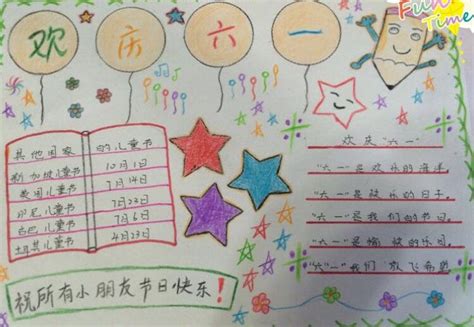 欢庆六一
Fun Time
其他国家 的儿童节
新加坡儿童节 10月1日
英国儿童节 7月14日
印尼儿童节 7月23日
古巴儿童节 7月6日
土耳其儿童节 4月23日
祝所有小朋友节日快乐！
欢庆"六一"
"六一"是欢乐的海洋,
"六一"是欢乐的日子,
"六一"是我们的节日,
"六一"是愉快的乐园,
"六一"我们放飞希望